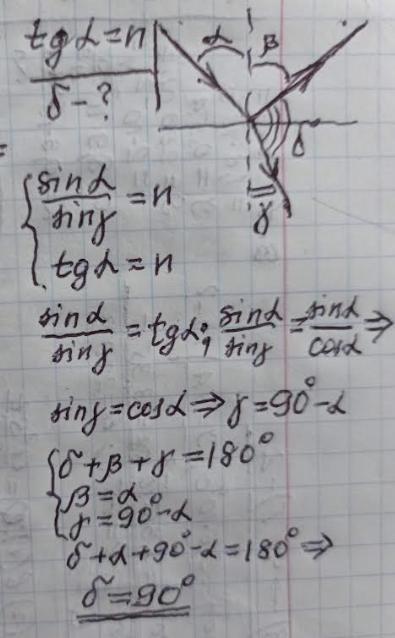 tgα = n
δ - ?
α β
δ
γ
sinα/sinγ = n
tgα = n
sinα/sinγ = tgα; sinα/sinγ = sinα/cosα ⇒
sinγ = cosα ⇒ γ = 90° - α
δ + β + γ = 180°
β = α
γ = 90° - α
δ + α + 90° - α = 180° ⇒
δ = 90°